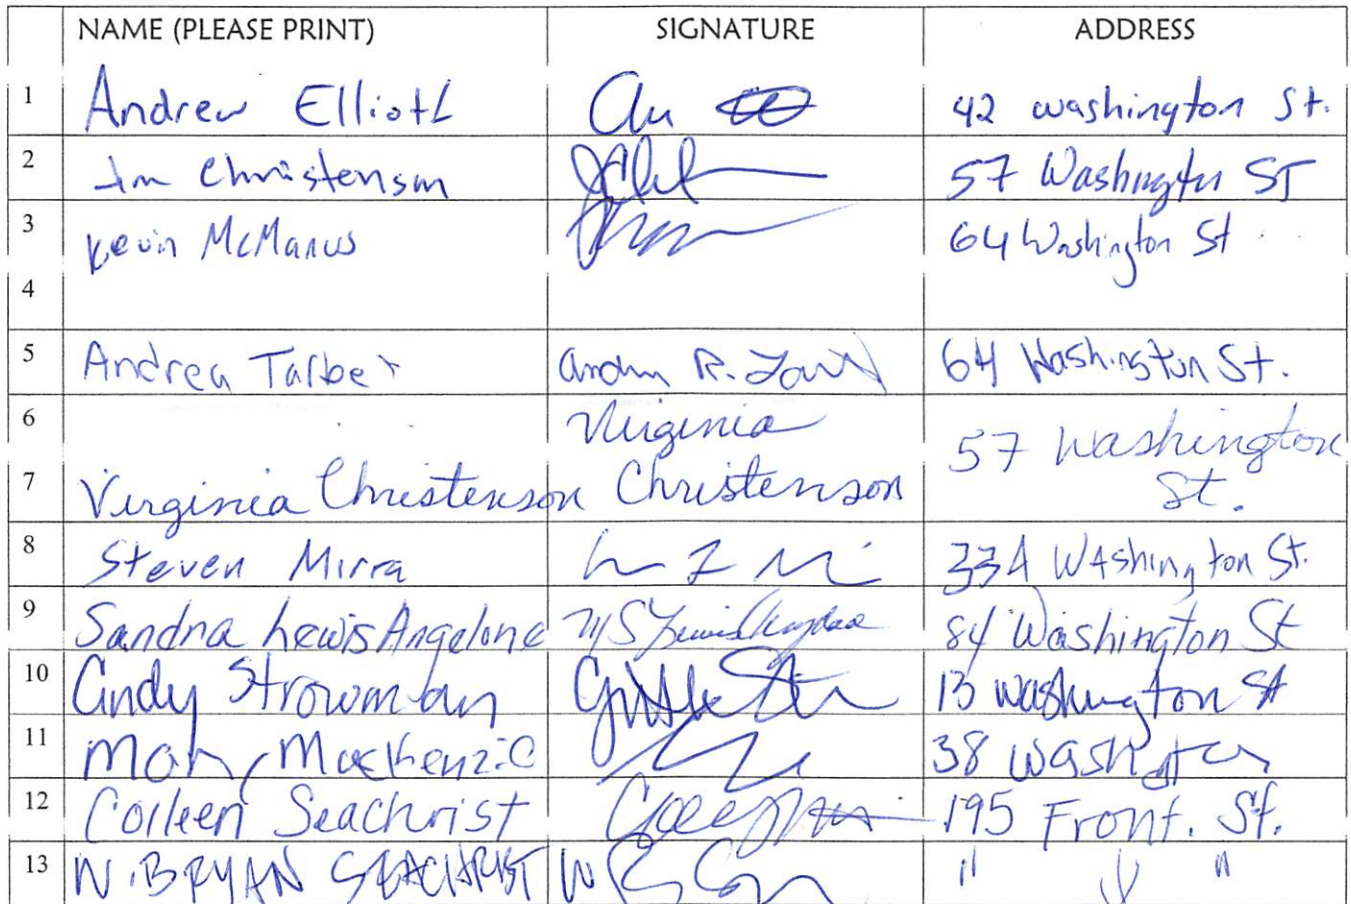 NAME (PLEASE PRINT) SIGNATURE ADDRESS
1 Andrew Elliott 42 Washington St.
2 Jim Christenson 57 Washington ST
3 Kevin McManus 64 Washington St
4
5 Andrea Talbet 64 Washington St.
6 Virginia 57 Washington
7 Virginia Christenson Christenson St.
8 Steven Mirra 33A Washington St.
9 Sandra Lewis Angelone 84 Washington St
10 Cindy Strowman 13 Washington St
11 Mary MacKenzie 38 Washington
12 Colleen Seachrist 195 Front. St.
13 W. BRYAN SEACHRIST " " "